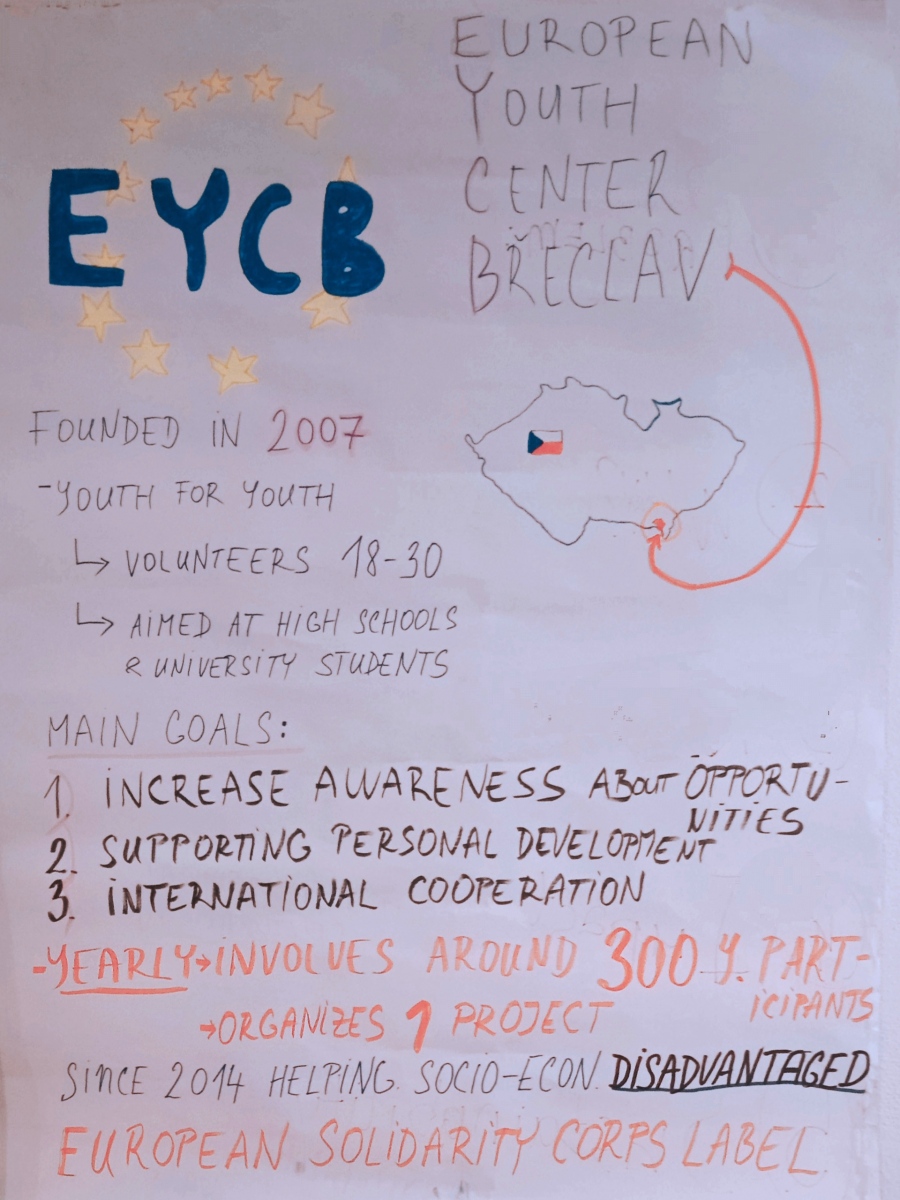 EYCB
EUROPEAN
YOUTH
CENTER
BŘECLAV
FOUNDED IN 2007
-YOUTH FOR YOUTH
↳ VOLUNTEERS 18-30
↳ AIMED AT HIGH SCHOOLS
& UNIVERSITY STUDENTS
MAIN GOALS:
1. INCREASE AWARENESS ABOUT OPPORTU-
NITIES
2. SUPPORTING PERSONAL DEVELOPMENT
3. INTERNATIONAL COOPERATION
-YEARLY→INVOLVES AROUND 300 Y. PART-
ICIPANTS
→ORGANIZES 1 PROJECT
SINCE 2014 HELPING SOCIO-ECON. DISADVANTAGED
EUROPEAN SOLIDARITY CORPS LABEL